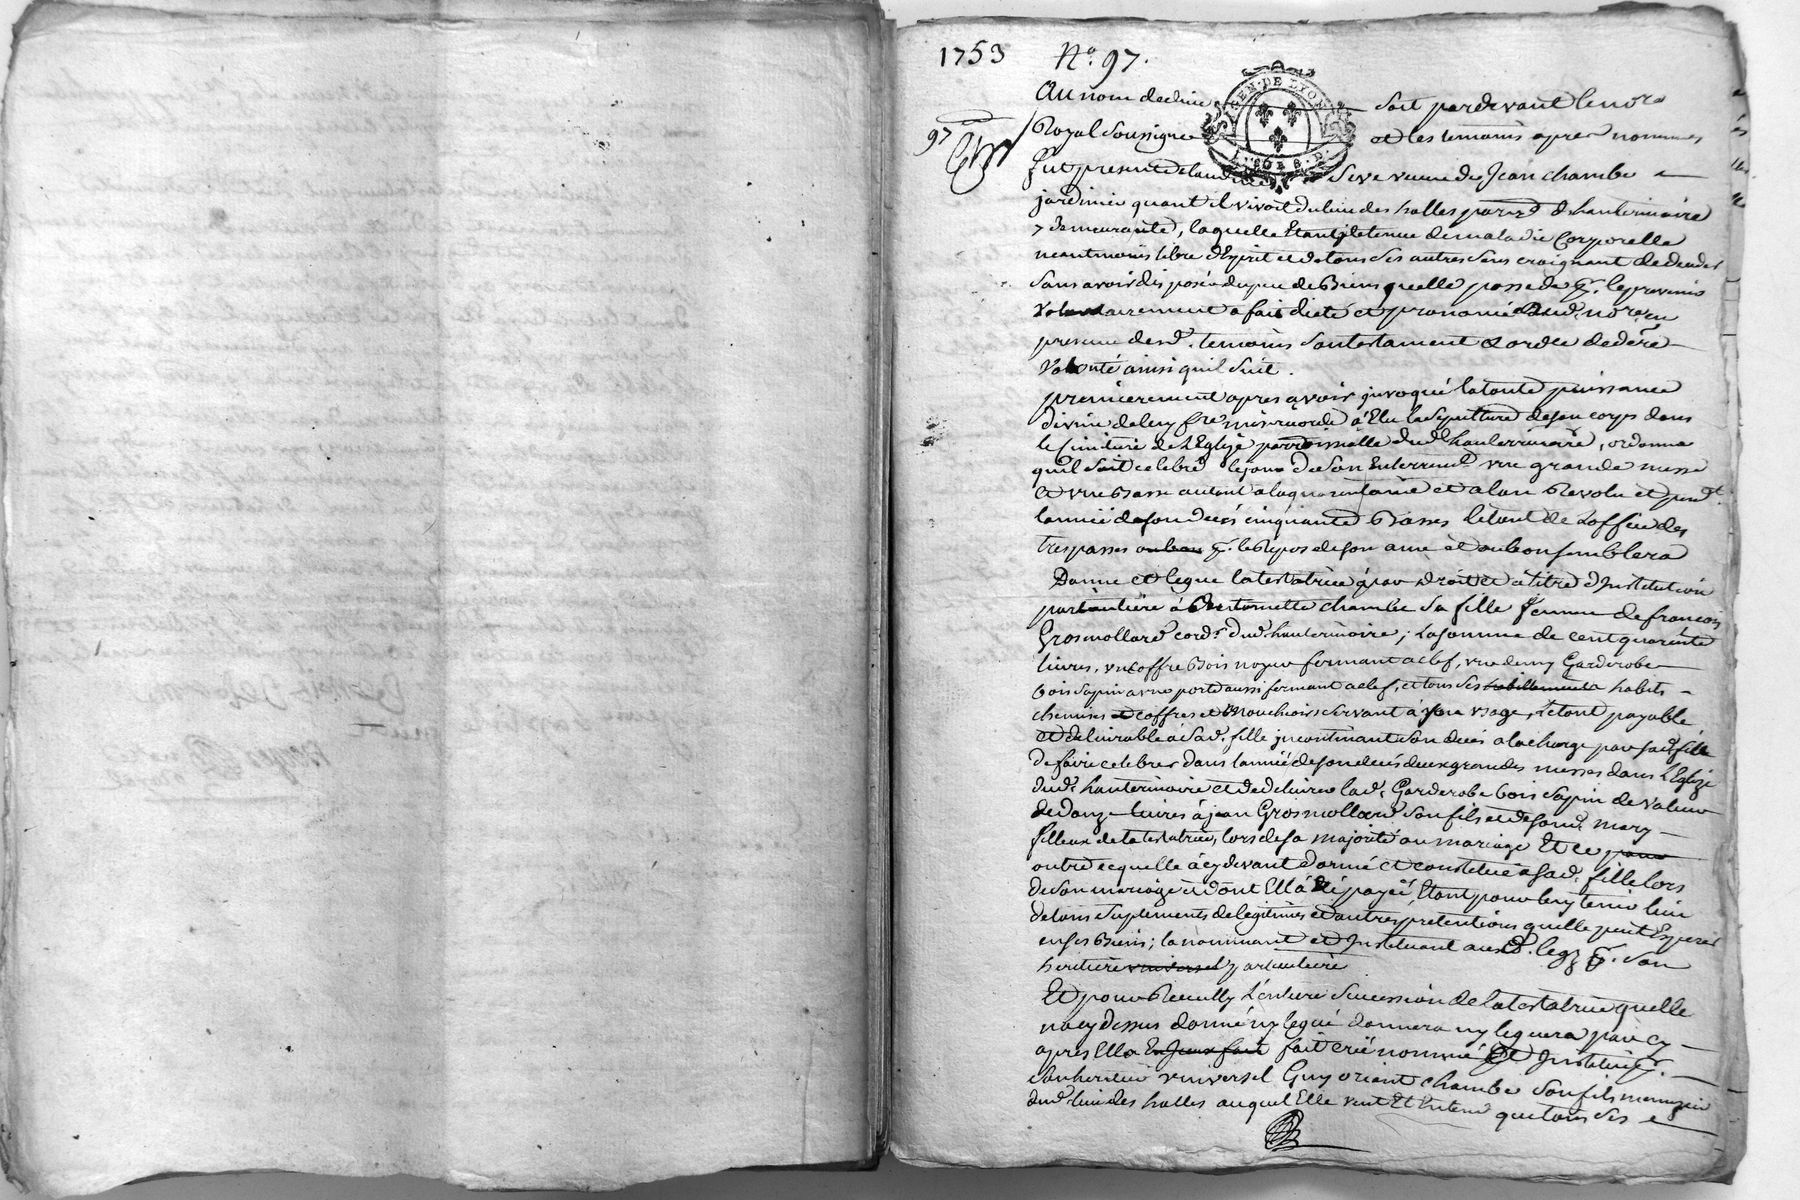 1753 No. 97.
GEN. DE LYON
Au nom de dieu soit pardevant le no.re
97
Royal Soussigné et les temoins apres nommes
fut presente Claudine Seve veuve de Jean chambe
jardinier quant il vivoit du lieu des halles parr.d d'hauterivoire
y demeurante, laquelle Etant detenue de maladie Corporelle
neantmoins libre d'Esprit et de tous ses autres sens craignant de deceder
sans avoir disposé du peu de Biens quelle possede p.r le prevenir
volontairement a fait dicté et prononcé aud. no.re en
presence desd. temoins son testament et ordre de de.re
volonté ainsi quil suit.
premierement apres avoir invoqué la toute puissance
divine de luy f.re misericorde à Elu la sepulture de son corps dans
le Cimitiere de L'Eglize parroissialle dud. hauterivoire, ordonne
quil soit celebré le jour de son Enterrem.t une grande messe
Et une Basse autant a la quarantaine et a l'an Revolu et pend.t
lannée de son deces cinquante Basses le tout de L'office des
trespasses p.r le Repos de son ame et ou bon semblera
Donne et legue la testatrice par droit et à titre d'Institution
particuliere à Antoinette chambe sa fille femme de francois
Grosmollard cord.r dud. hauterivoire, la somme de cent quarente
livres, un Coffre Bois noyer fermant a clef, une demy Garderobe
bois sapin a une porte aussi fermant a clef, et tous ses habillements habits
chemises et coffres et Mouchoirs servant à son usage, Le tout payable
et delivrable à sad. fille incontinant son deces a la charge par sad. fille
de faire celebrer dans lannée de son deces deux grandes messes dans L'Eglize
dud. hauterivoire et de delivrer lad. Garderobe bois sapin de valeur
de douze livres à jean Grosmollard son fils et de sond. mary
filleux de la testatrice, lors de sa majorité ou mariage Et ce pour
outre ce quelle à cy devant donné et constitué a sad. fille lors
de son mariage et dont Ell'à Eté payée, Etant pour luy tenir lieu
de tous suplements de legitimes et autres pretentions quelle peut Esperer
en ses Biens; la nommant et Instituant auxd. legz p.r son
heritiere universel particuliere
Et pour Recuillir L'entiere succession de la testatrice quelle
n'a cy dessus donné ny legué donnera ny leguera par cy
apres Ell'a fait creé nommé Et Institué p.r
son heritier universel Guy orient chambe son fils
dud. lieu des halles auquel Elle veut Et Entend que tous ses